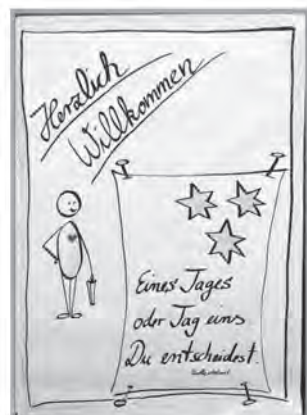 Herzlich
Willkommen
Eines Tages
oder Tag eins
Du entscheidest.